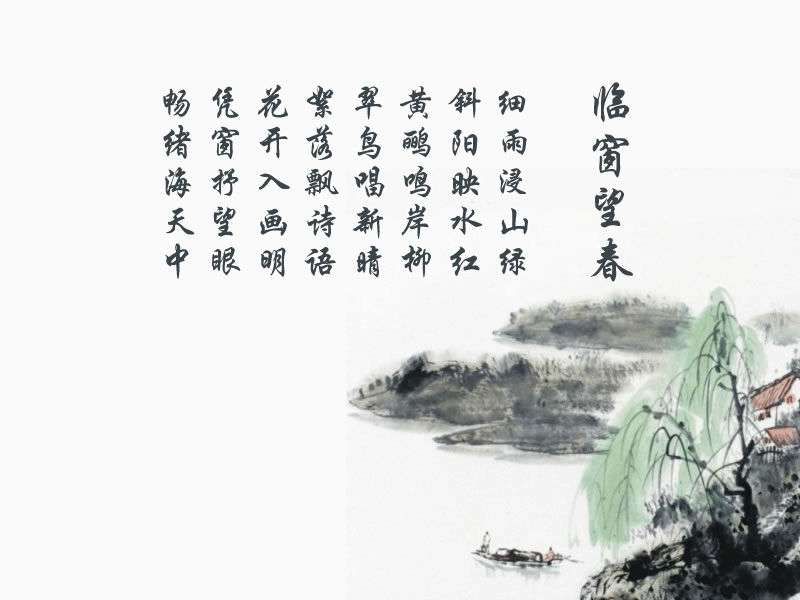 临窗望春
细雨浸山绿
斜阳映水红
黄鹂鸣岸柳
翠鸟唱新晴
絮落飘诗语
花开入画明
凭窗抒望眼
畅绪海天中